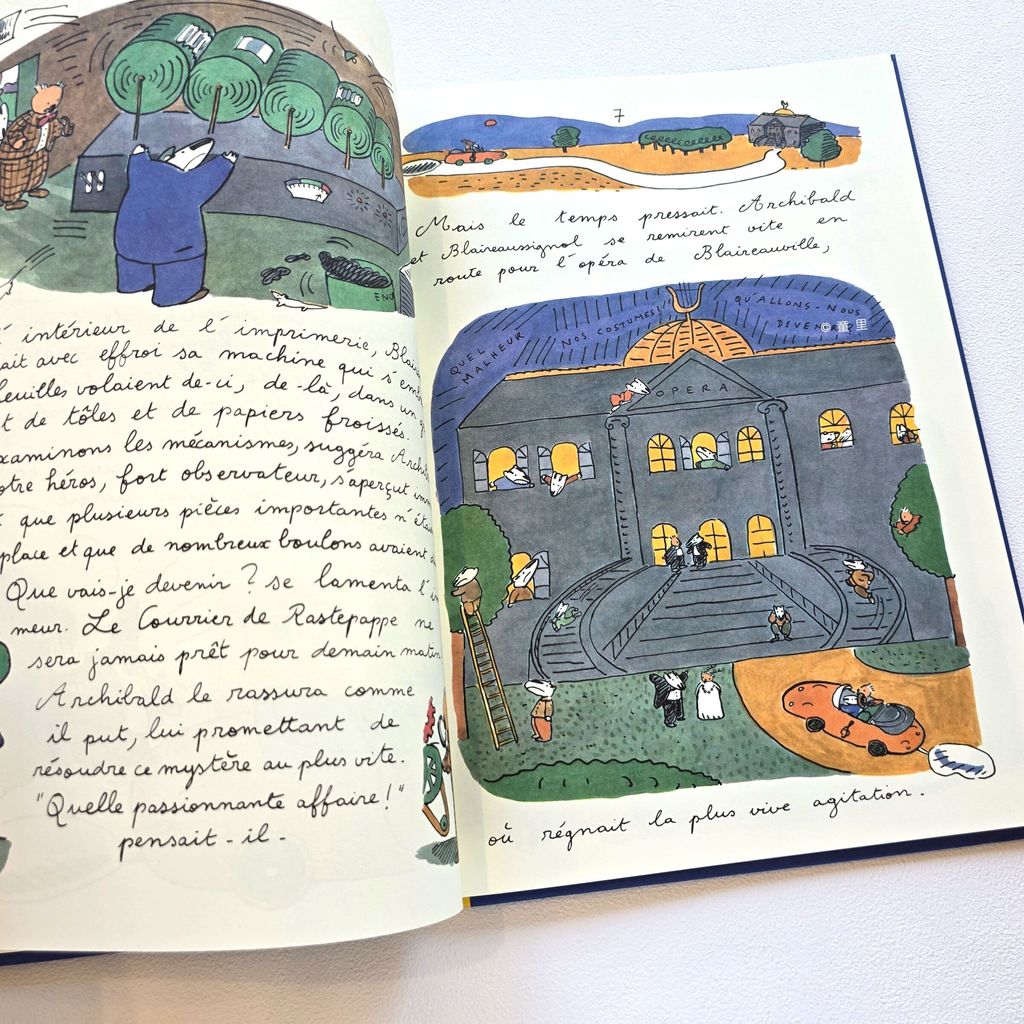 END
intérieur de l'imprimerie,
avec effroi sa machine qui
volaient de-ci, de-là, dans un
de tôles et de papiers froissés.
les mécanismes, suggéra
héros, fort observateur, s'aperçut
que plusieurs pièces importantes
place et que de nombreux boulons avaient
Que vais-je devenir ? se lamenta l'
meur. Le Courrier de Rastepappe ne
sera jamais prêt pour demain matin
Archibald le rassura comme
il put, lui promettant de
résoudre ce mystère au plus vite.
"Quelle passionnante affaire !"
pensait-il-
7
Mais le temps pressait. Archibald
et Blaireaussignol se remirent vite en
route pour l'opéra de Blaireauville,
QUEL
MALHEUR
NOS COSTUMES!
QU'ALLONS-NOUS
© 童里
OPERA
où régnait la plus vive agitation.